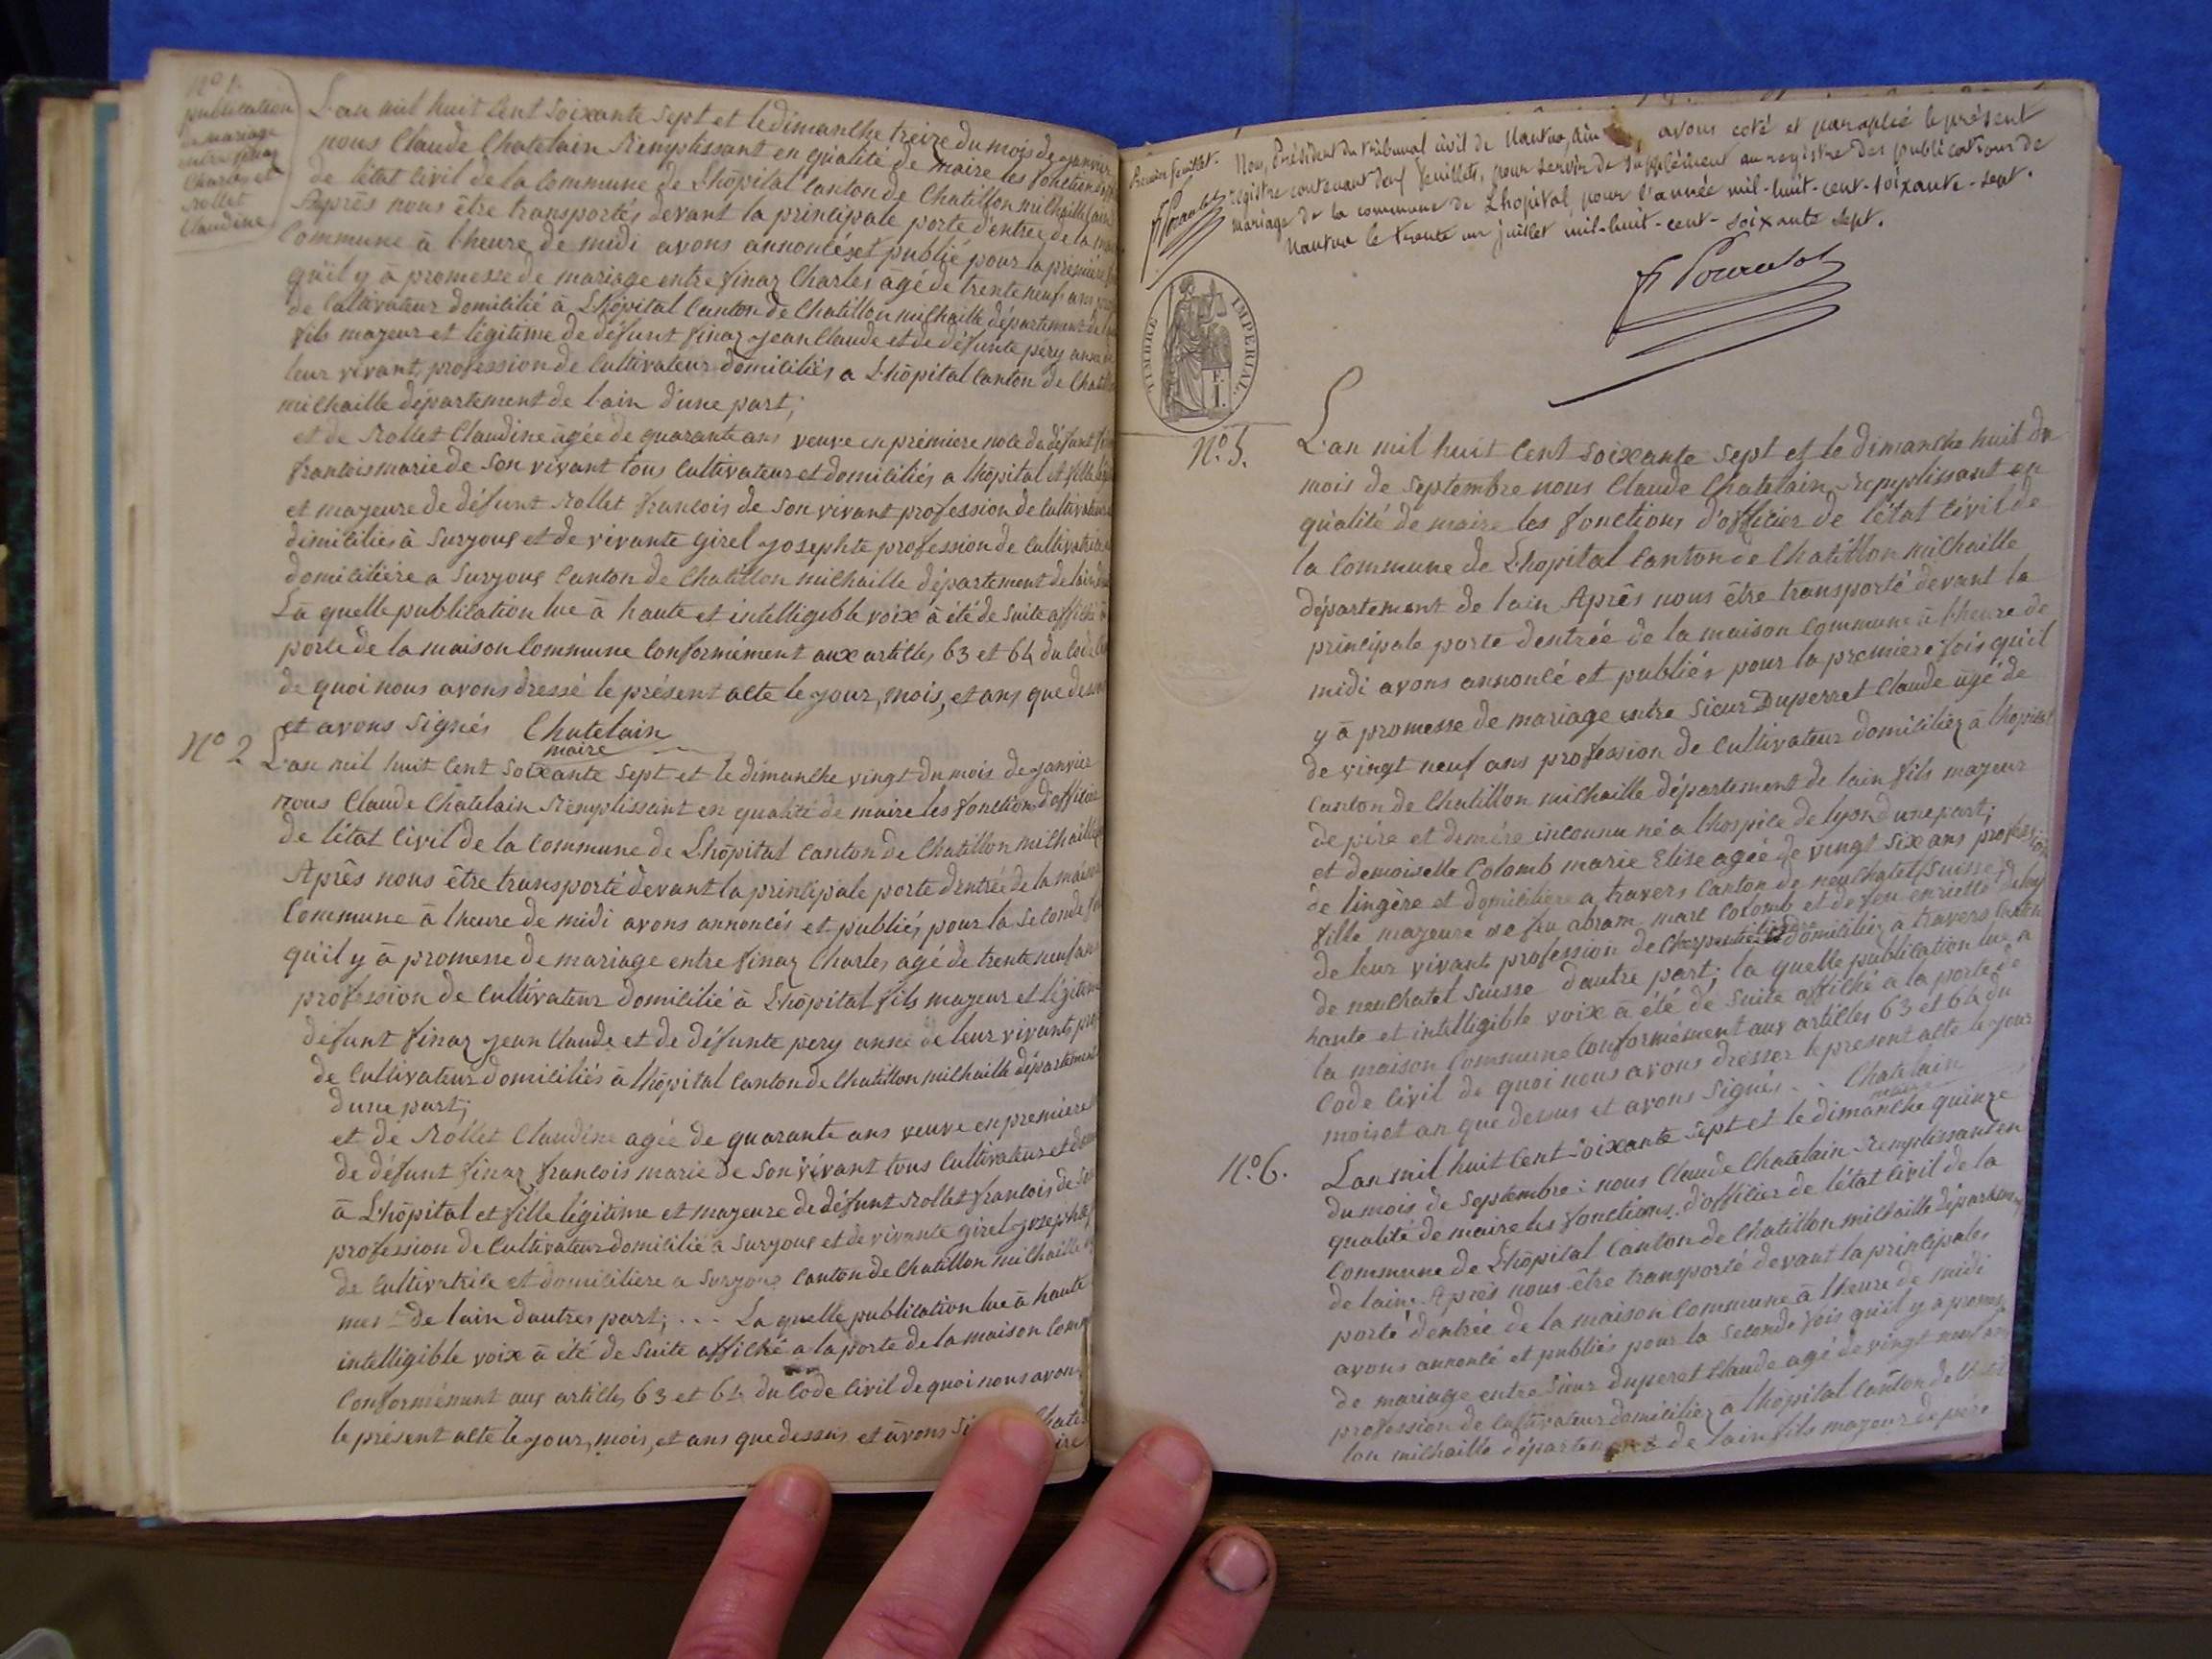 N° 1.
publication
de mariage
entre finaz
Charles et
Rollet
Claudine
L'an mil huit Cent Soixante Sept et le dimanche treize du mois de janvier
nous Claude Chatelain Remplissant en qualité de maire les fonctions
de létat Civil de la Commune de Lhôpital Canton de Chatillon milhaille
Après nous être transportés devant la principale porte d'entrée de la
Commune à lheure de midi avons annoncés et publié pour la première
qu'il y à promesse de mariage entre finaz Charles âgé de trente neuf ans
de Cultivateur domilié à Lhôpital Canton de Chatillon milhaille département de
fils majeur et légitime de défunt finaz jean Claude et de défunte péry anne
leur vivant, profession de Cultivateur domiciliés a Lhôpital Canton de
milhaille département de lain d'une part;
et de Rollet Claudine âgée de quarante ans veuve en première noce de défunt
francois marie de Son vivant tous Cultivateur et domiciliés a lhôpital et fille
et majeure de défunt Rollet francois de Son vivant profession de Cultivateur
domiciliés à Surjoux et de vivante girel josephte profession de Cultivatrice
domicilière a Surjoux Canton de Chatillon milhaille département de lain
La quelle publication lue à haute et intelligible voix à été de Suite affiché
porte de la maison Commune Conformément aux articles 63 et 64 du
de quoi nous avons dressé le présent acte le jour, mois, et ans que
et avons Signés Chatelain
maire
N° 2 L'an mil huit Cent Soixante Sept et le dimanche vingt du mois de janvier
nous Claude Chatelain Remplissant en qualité de maire les fonctions d'officier
de létat Civil de la Commune de Lhôpital Canton de Chatillon milhaille
Après nous être transporté devant la principale porte d'entrée de la maison
Commune à lheure de midi avons annoncés et publiés pour la Seconde
qu'il y à promesse de mariage entre finaz Charles agé de trente neuf ans
profession de Cultivateur domicilié à Lhôpital fils majeur et légitime
défunt finaz jean Claude et de défunte pery anne de leur vivant
de Cultivateur domiciliés à lhôpital Canton de Chatillon milhaille département
d'une part;
et de Rollet Claudine agée de quarante ans veuve en premiere
de défunt finaz francois marie de Son vivant tous Cultivateur et
à Lhôpital et fille légitime et majeure de défunt Rollet francois de
profession de Cultivateur domicilié a Surjoux et de vivante girel
de Cultivatrice et domicilière a Surjoux Canton de Chatillon milhaille
ment de lain dautres part; ... La quelle publication lue à haute
intelligible voix à été de Suite affiché a la porte de la maison
Conformément aux articles 63 et 64 du Code Civil de quoi nous avons
le présent acte le jour, mois, et ans que dessus et avons
Premier feuillet.
Nous, Président du tribunal civil de Nantua, Ain, avons coté et paraphé le présent
registre contenant deux feuillets, pour servir de Supplément au registre des publications de
mariage de la commune de Lhopital, pour l'année mil-huit-cent-soixante-sept.
Nantua le trente un juillet mil-huit-cent-soixante sept.
TIMBRE IMPÉRIAL.
N° 5.
L'an mil huit Cent Soixante Sept et le dimanche huit du
mois de Septembre nous Claude Chatelain Remplissant en
qualité de maire les fonctions d'officier de l'état Civil de
la Commune de Lhopital Canton de Chatillon milhaille
département de lain Après nous être transporté devant la
principale porte dentrée de la maison Commune à lheure de
midi avons annoncé et publiés pour la première fois qu'il
y à promesse de mariage entre Sieur Duperret Claude âgé de
de vingt neuf ans profession de Cultivateur domiciliez à lhôpital
Canton de Chatillon milhaille département de lain fils majeur
de père et de mère inconnu né a lhospice de lyon d'une part;
et demoiselle Colomb marie Elise agée de vingt Six ans profession
de lingère et domicilière a travers Canton de neuchatel (Suisse)
fille majeure de feu abram marc Colomb et de feu enriette
de leur vivant profession de Charpentier domiciliez a travers Canton
de neuchatel Suisse d'autre part; la quelle publication lue a
haute et intelligible voix à été de Suite affiché a la porte de
la maison Commune Conformément aux articles 63 et 64 du
Code Civil de quoi nous avons dresser le présent acte le jour
mois et an que dessus et avons Signés .. Chatelain
maire
N° 6.
Lan mil huit Cent Soixante Sept et le dimanche quinze
du mois de Septembre : nous Claude Chatelain Remplissant en
qualité de maire les fonctions d'officier de létat Civil de la
Commune de Lhôpital Canton de Chatillon milhaille département
de lain. Après nous être transporté devant la principales
porte dentrée de la maison Commune à lheure de midi
avons annoncé et publiés pour la Seconde fois qu'il y a promesse
de mariage entre Sieur duperet Claude agé de vingt neuf ans
profession de Cultivateur domiciliez a lhôpital Canton de
lon milhaille département de lain fils majeur de père